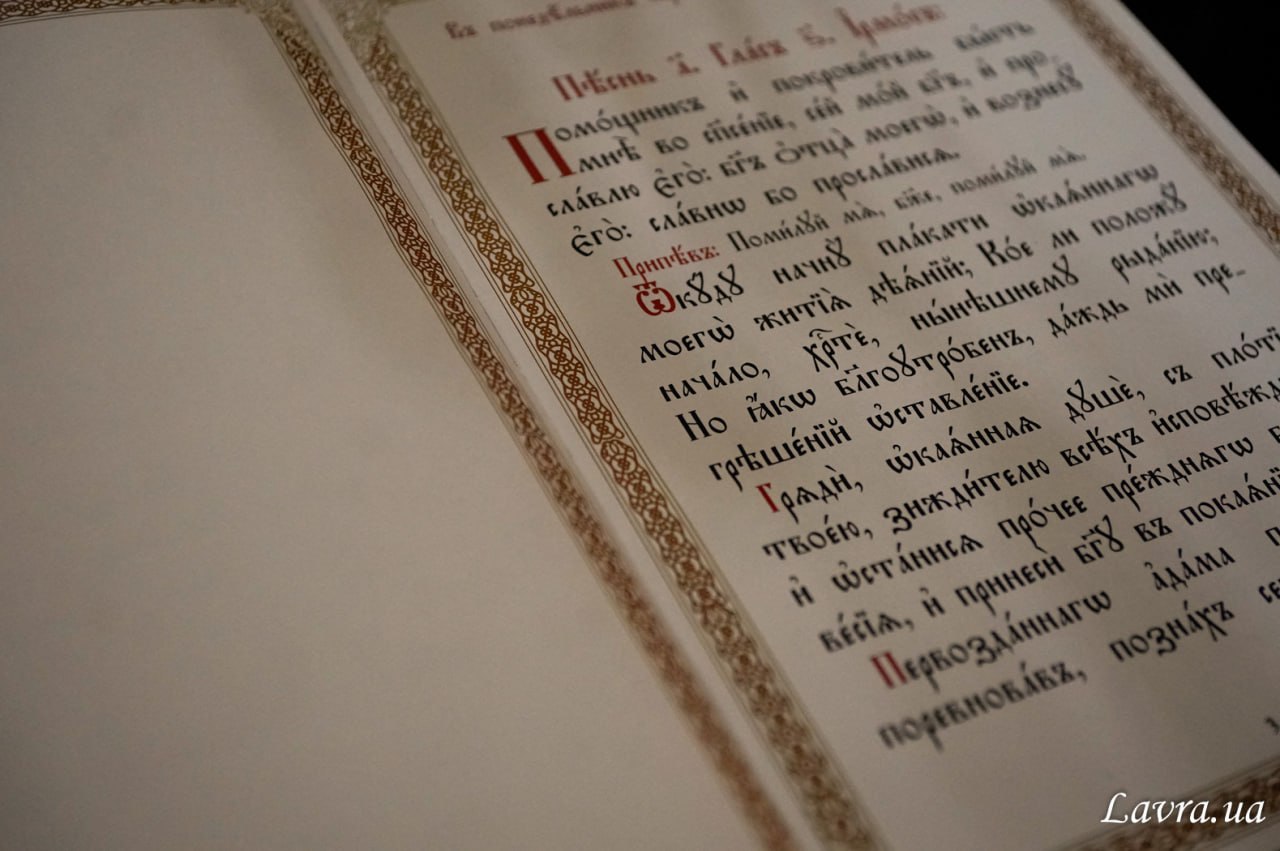 Въ понедѣльникъ
Пѣснь а҃. Гласъ ѕ҃. Ірмосъ:
Помо́щникъ и҆ покрови́тель бы́сть
мнѣ̀ во сп҃се́нїе, се́й мо́й бг҃ъ, и҆ про-
сла́влю є҆го̀: бг҃ъ ѻ҆тца̀ моегѡ̀, и҆ вознесꙋ̀
є҆го̀: сла́внѡ бо просла́висѧ.
Припѣ́въ: Поми́лꙋй мѧ̀, бж҃е, поми́лꙋй мѧ̀.
Ѿкꙋ́дꙋ начнꙋ̀ пла́кати ѡ҆каѧ́ннагѡ
моегѡ̀ житїѧ̀ дѣѧ́нїй; Ко́е ли положꙋ̀
нача́ло, хр҃тѐ, ны́нѣшнемꙋ рыда́нїю;
Но ꙗ҆́кѡ бл҃гоꙋтро́бенъ, да́ждь мѝ пре-
грѣше́нїй ѡ҆ставле́нїе.
Грѧдѝ, ѡ҆каѧ́ннаѧ дꙋшѐ, съ пло́тї
твое́ю, зижди́телю всѣ́хъ и҆сповѣ́жд
и҆ ѡ҆ста́нисѧ про́чее пре́жднѧгѡ
ве́сїѧ, и҆ принесѝ бг҃ꙋ въ покаѧ́нї
Первозда́ннагѡ а҆да́ма п
поревнова́въ, позна́хъ се
Lavra.ua